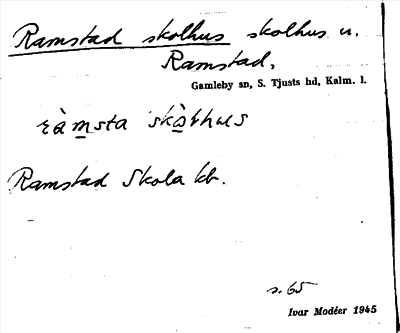 Ramstad skolhus skolhus u.
Ramstad,
Gamleby sn, S. Tjusts hd, Kalm. l.
ràmsta skò̲lhus
Ramstad Skola kb.
s. 65
Ivar Modéer 1945